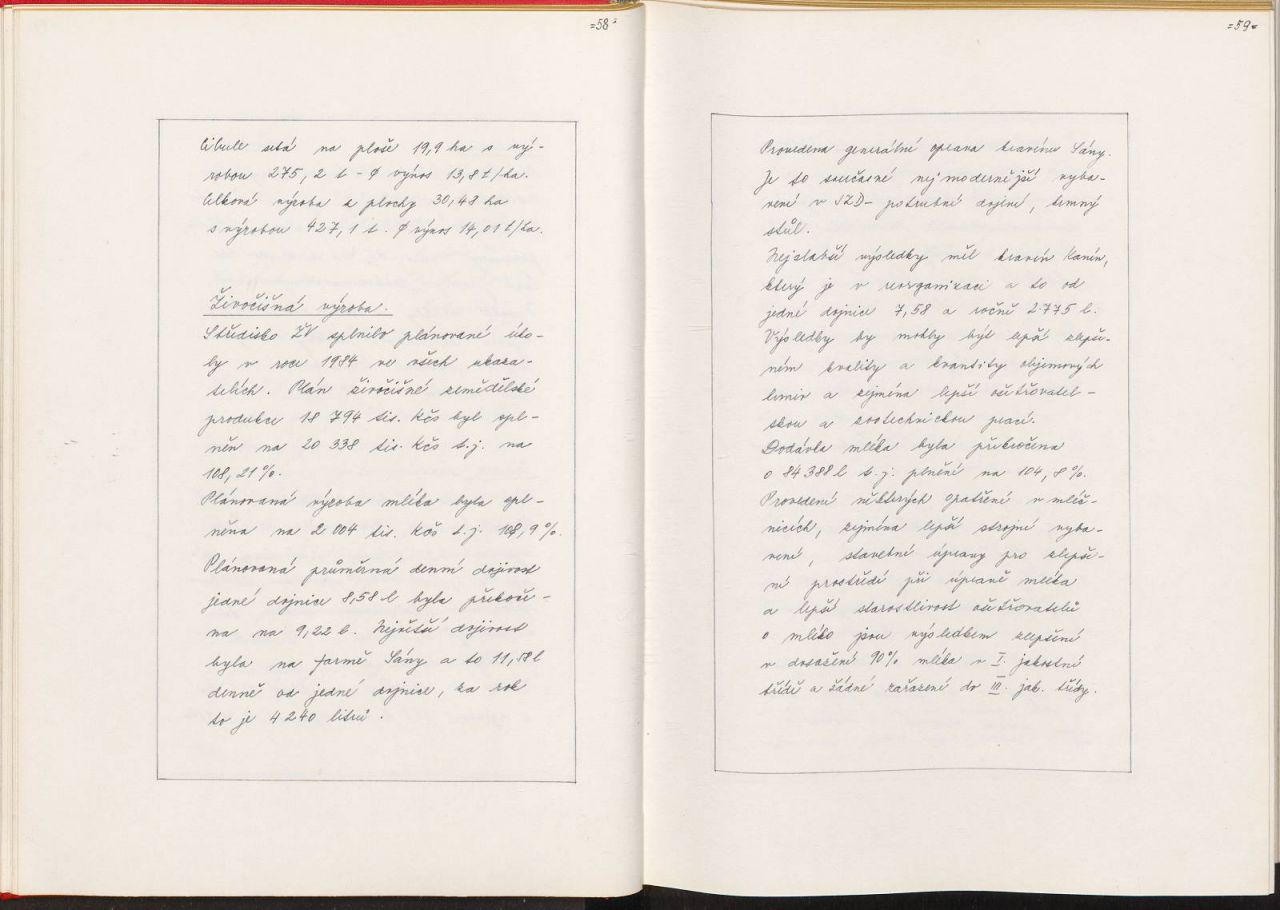 =58=
Cibule setá na ploše 19,9 ha s vý-
robou 275,2 t - ø výnos 13,8 t/ha.
Celková výroba z plochy 30,48 ha
s výrobou 427,1 t. ø výnos 14,01 t/ha.
Živočišná výroba.
Středisko ŽV splnilo plánované úko-
ly v roce 1984 ve všech ukaza-
telích. Plán živočišné zemědělské
produkce 18 794 tis. Kčs byl spl-
něn na 20 338 tis. Kčs t.j. na
108,21 %.
Plánovaná výroba mléka byla spl-
něna na 2 004 tis. Kčs t.j. 108,9 %.
Plánovaná průměrná denní dojivost
jedné dojnice 8,58 l byla překoře-
na na 9,22 l. Největší dojivost
byla na farmě Sány a to 11,58 l
denně od jedné dojnice, za rok
to je 4 240 litrů.
=59=
Provedena generální oprava kravína Sány.
Je to současně nejmodernější vyba-
vení v JZD - potrubní dojení, krmný
stůl.
Nejslabší výsledky měl kravín Kanín,
který je v reorganizaci a to od
jedné dojnice 7,58 a ročně 2.775 l.
Výsledky by mohly být lepší zlepše-
ním kvality a kvantity objemových
krmiv a zejména lepší ošetřovatel-
skou a zootechnickou prací.
Dodávka mléka byla překročena
o 84 388 l t.j. plnění na 104,8 %.
Provedení některých opatření v mléč-
nicích, zejména lepší strojní vyba-
vení, stavební úpravy pro zlepše-
ní prostředí při úpravě mléka
a lepší starostlivost ošetřovatelů
o mléko jsou výsledkem zlepšení
v dosažení 90% mléka v I. jakostní
třídě a žádné zařazení do III. jak. třídy.